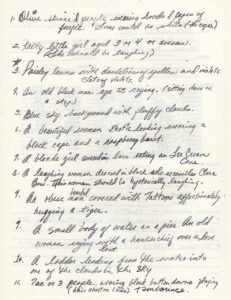 1. Olive skinned people wearing hoods & capes of
people. Some could be white (the eyes)
2. Pretty little girl aged 3 or 4 or
(She should be laughing)
3. Paisley lawns with dandelions yellow and violets.
4. An old black man age 85 crying. (sitting down on
a step)
Blue sky background with fluffy clouds.
6. A beautiful woman Exotic looking wearing a
black cape and a raspberry beret.
7. A blonde girl eating an Ice Cream
Cone.
8. A laughing woman dressed in black who resembles Clara
Bow. This woman should be hysterically laughing.
9. An obese man covered with Tattoos affectionately
hugging a tiger.
9. A small body of water on a pier An old
woman crying with a handkerchief over a lost
love
10. A ladder leading from the water into
one of the clouds in the sky
11. Two or 3 people, wearing black buttondowns playing
Tambourines.